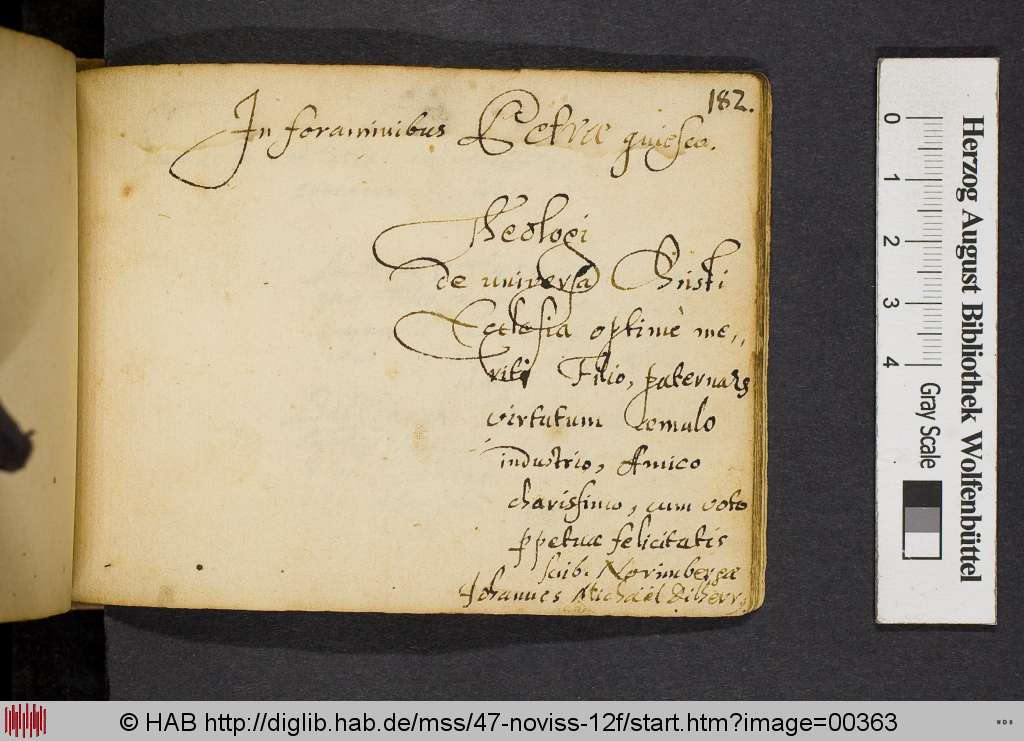 182.
In foraminibus Petræ quiesco.
Theologi
de universa Christi
Ecclesia optimè me„
riti Filio, paternars
virtutum æmulo
industrio, Amico
charissimo, cum voto
ppetuæ felicitatis
scrib. Norimbergæ
Johannes Michaël Dilherr.
0 1 2 3 4
Gray Scale
Herzog August Bibliothek Wolfenbüttel
© HAB http://diglib.hab.de/mss/47-noviss-12f/start.htm?image=00363
HAB